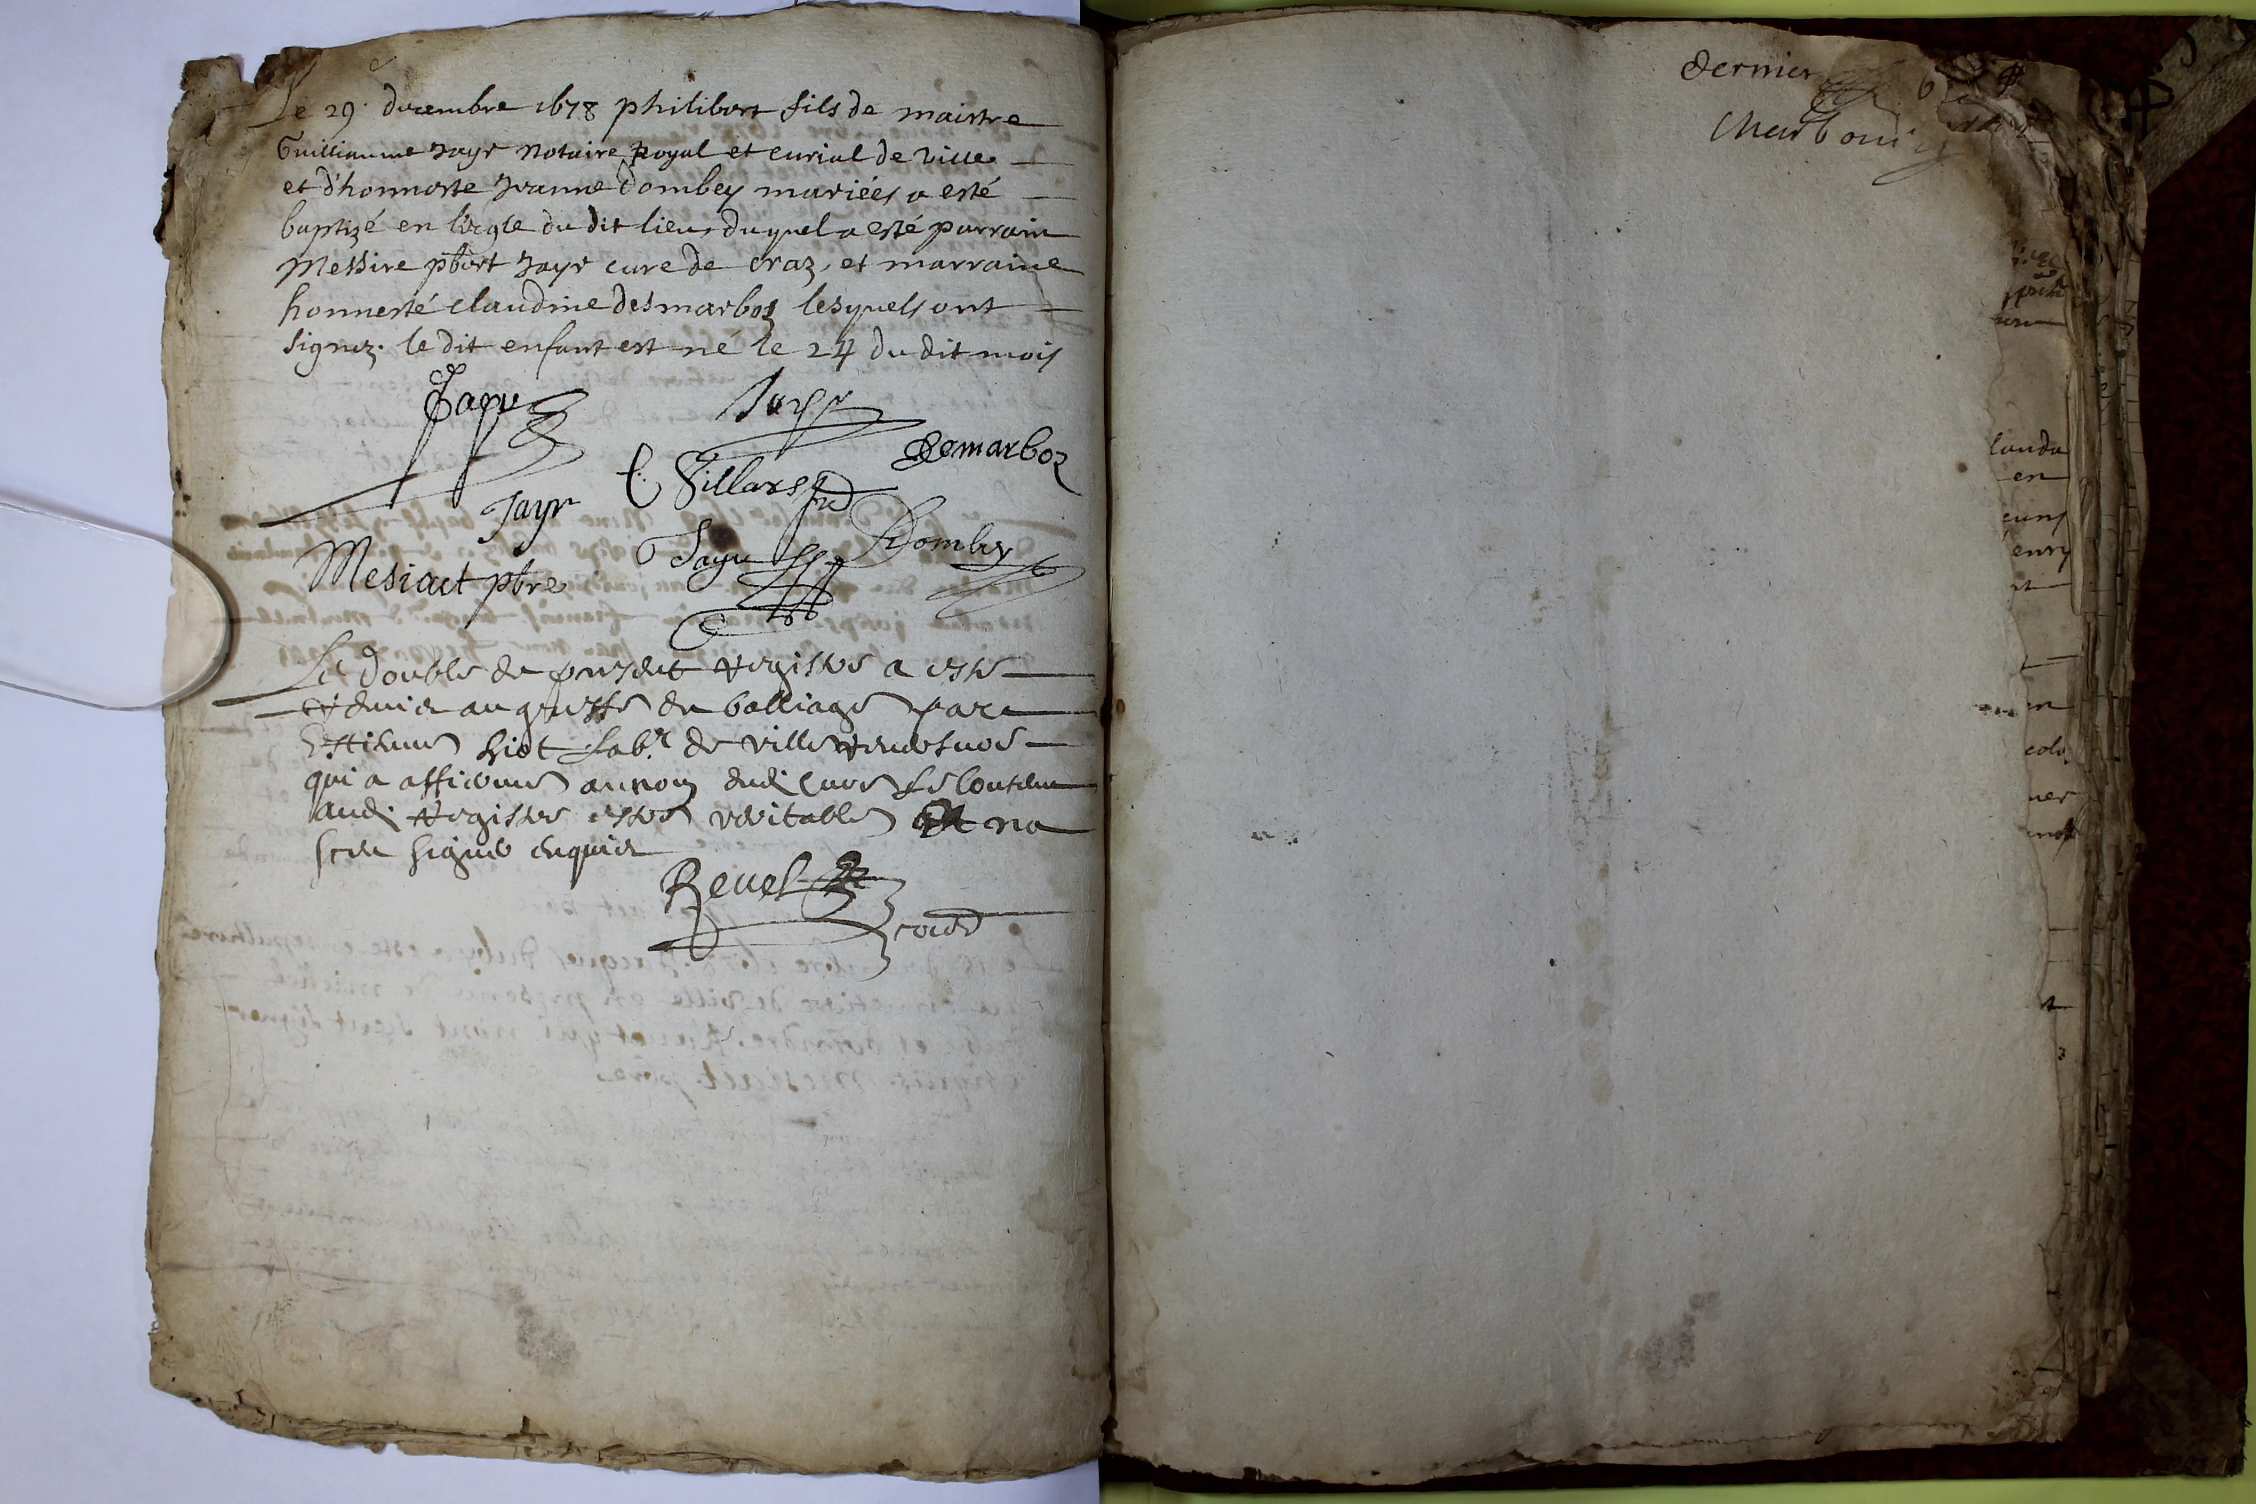 Le 29. decembre 1678 philibert fils de maistre
Guilliaume Jayr Notaire Royal et curial de Ville
et d'honneste Jeanne Dombey mariées a esté
baptizé en l'egle du dit lieu duquel a esté parrain
Messire pbert Jayr curé de craz, et marraine
honnesté claudine desmarboz lesquels ont
signez. le dit enfant est né le 24 du dit mois
Jayr
Jayr
Demarboz
C. Villars
Jayr
Jayr
Dombey
Mesiact pbre
Le double de present Registre a esté
au greffe du balliage par
Estienne hiot lab.r de villereversure
qui a affirmé au nom dudi curé le contenu
audi Registre estre veritable et na
sceu signer enquis
Revel
Dernier
Charbonier